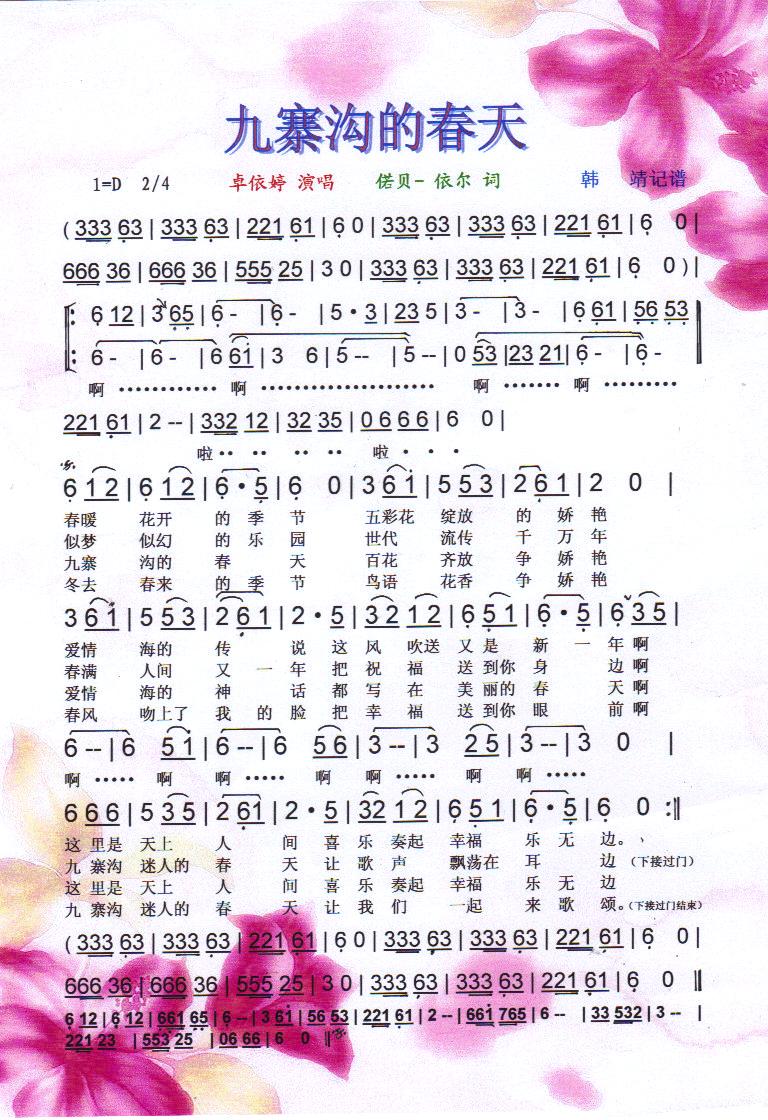 九寨沟的春天
1=D 2/4 卓依婷 演唱 偌贝-依尔 词 韩 靖记谱
(333 63|333 63|221 61|6 0|333 63|333 63|221 61|6 0|
666 36|666 36|555 25|3 0|333 63|333 63|221 61|6 0)|
6 12|3 65|6 -|6 -|5·3|23 5|3 -|3 -|6 61|56 53
6 -|6 -|6 61|3 6|5 --|5 --|0 53|23 21|6 -|6 -
啊 ············ 啊 ····················· 啊 ······· 啊 ·········
221 61|2 --|332 12|32 35|0 6 6 6|6 0|
啦·· ·· ·· ·· 啦 · · ·
6 1 2|6 1 2|6·5|6 0|3 6 1|5 5 3|2 6 1|2 0|
春暖 花开 的 季 节 五彩花 绽放 的 娇 艳
似梦 似幻 的 乐 园 世代 流传 千 万 年
九寨 沟的 春 天 百花 齐放 争 娇 艳
冬去 春来 的 季 节 鸟语 花香 争 娇 艳
3 6 1|5 5 3|2 6 1|2·5|3 2 1 2|6 5 1|6·5|6 3 5|
爱情 海的 传 说 这 风 吹送 又 是 新 一 年 啊
春满 人间 又 一 年 把 祝 福 送 到你 身 边 啊
爱情 海的 神 话 都 写 在 美 丽的 春 天 啊
春风 吻上了 我 的 脸 把 幸 福 送 到你 眼 前 啊
6 --|6 5 1|6 --|6 5 6|3 --|3 2 5|3 --|3 0|
啊 ····· 啊 啊 ····· 啊 啊 ····· 啊 啊 ·····
6 6 6|5 3 5|2 6 1|2·5|3 2 1 2|6 5 1|6·5|6 0 :||
这 里是 天上 人 间 喜 乐 奏起 幸福 乐 无 边。、
九 寨沟 迷人的 春 天 让 歌 声 飘荡在 耳 边 (下接过门)
这 里是 天上 人 间 喜 乐 奏起 幸福 乐 无 边
九 寨沟 迷人的 春 天 让 我 们 一起 来 歌 颂。(下接过门结束)
(333 63|333 63|221 61|6 0|333 63|333 63|221 61|6 0|
666 36|666 36|555 25|3 0|333 63|333 63|221 61|6 0 ||
6 12|6 12|661 65|6 --|3 61|56 53|221 61|2 --|661 765|6 --|33 532|3 --|
221 23|553 25|06 66|6 0 ||